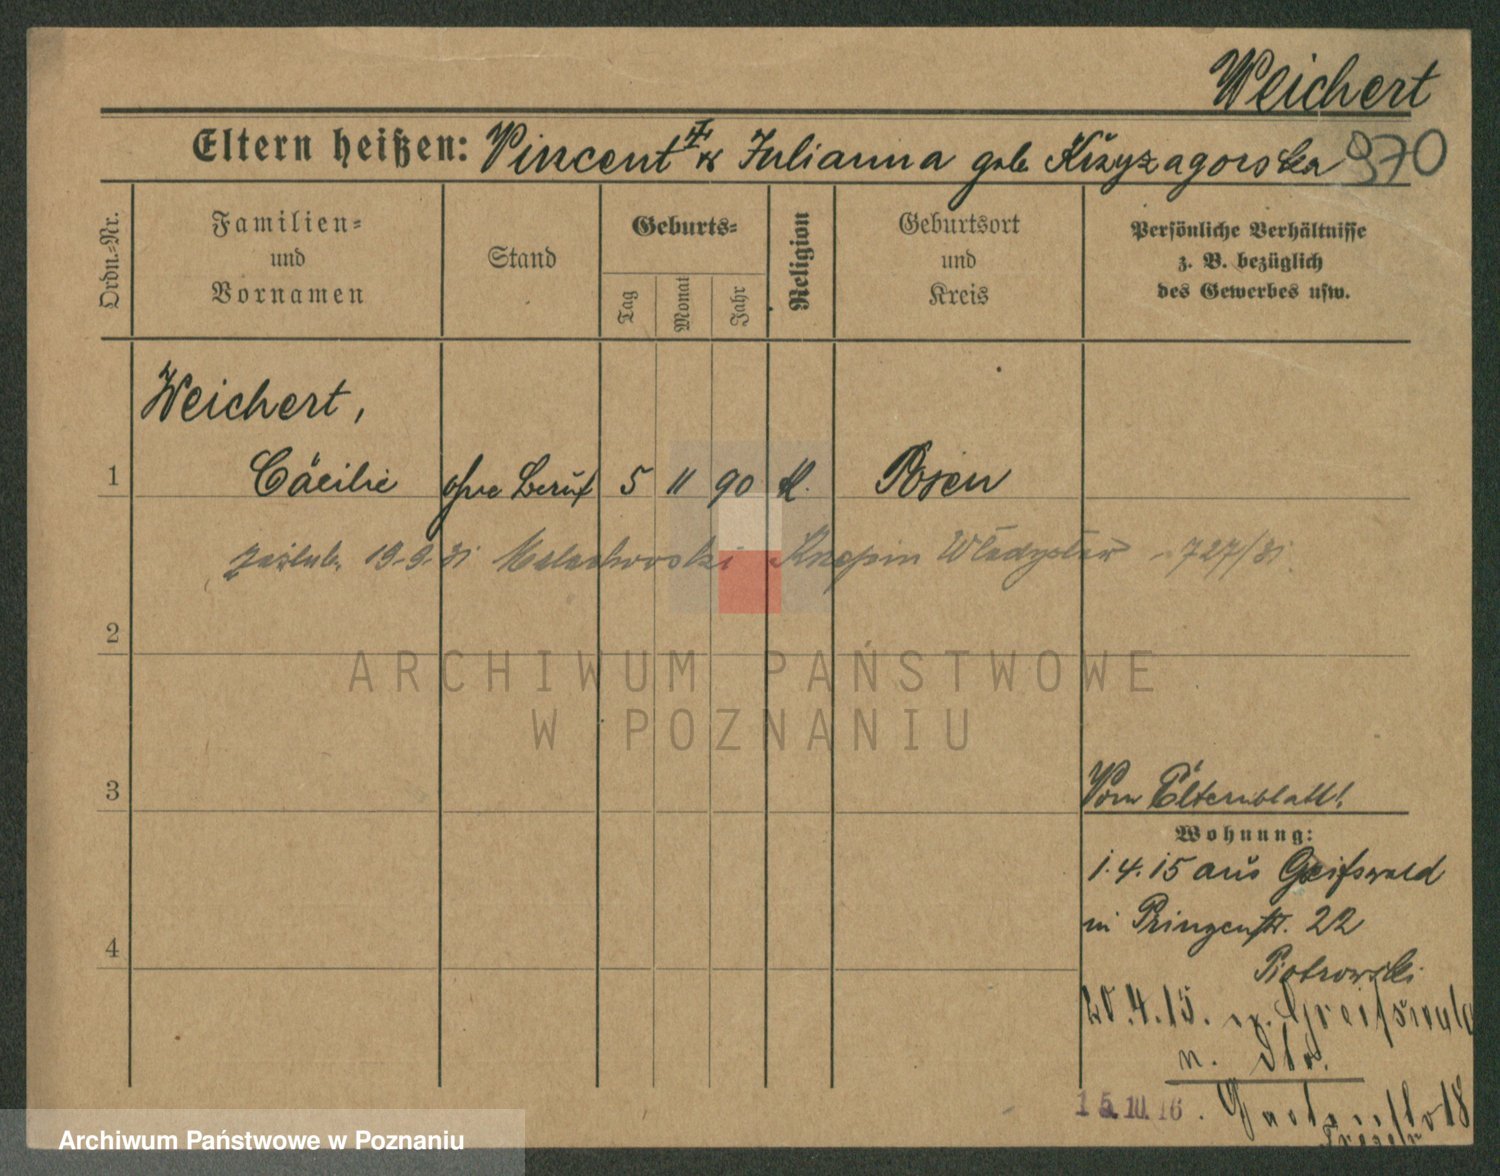 Weichert
Eltern heißen: Vincent u Julianna geb Kržyzagorska 970
Ordn.-Nr.
Familien-
und
Vornamen
Stand
Geburts-
Tag
Monat
Jahr
Religion
Geburtsort
und
Kreis
Persönliche Verhältnisse
z. B. bezüglich
des Gewerbes usw.
Weichert,
1 Cäcilie ohne Beruf 5 11 90 k. Posen
zaślub. 19.9.31 Władysław 727/31
2
ARCHIWUM PAŃSTWOWE
W POZNANIU
3
Vom Elternblatt!
Wohnung:
1.4.15 aus Greifswald
in Prinzenstr. 22
4
Piotrowski
20.4.15. Greifswald
15.10.16. 18
Archiwum Państwowe w Poznaniu